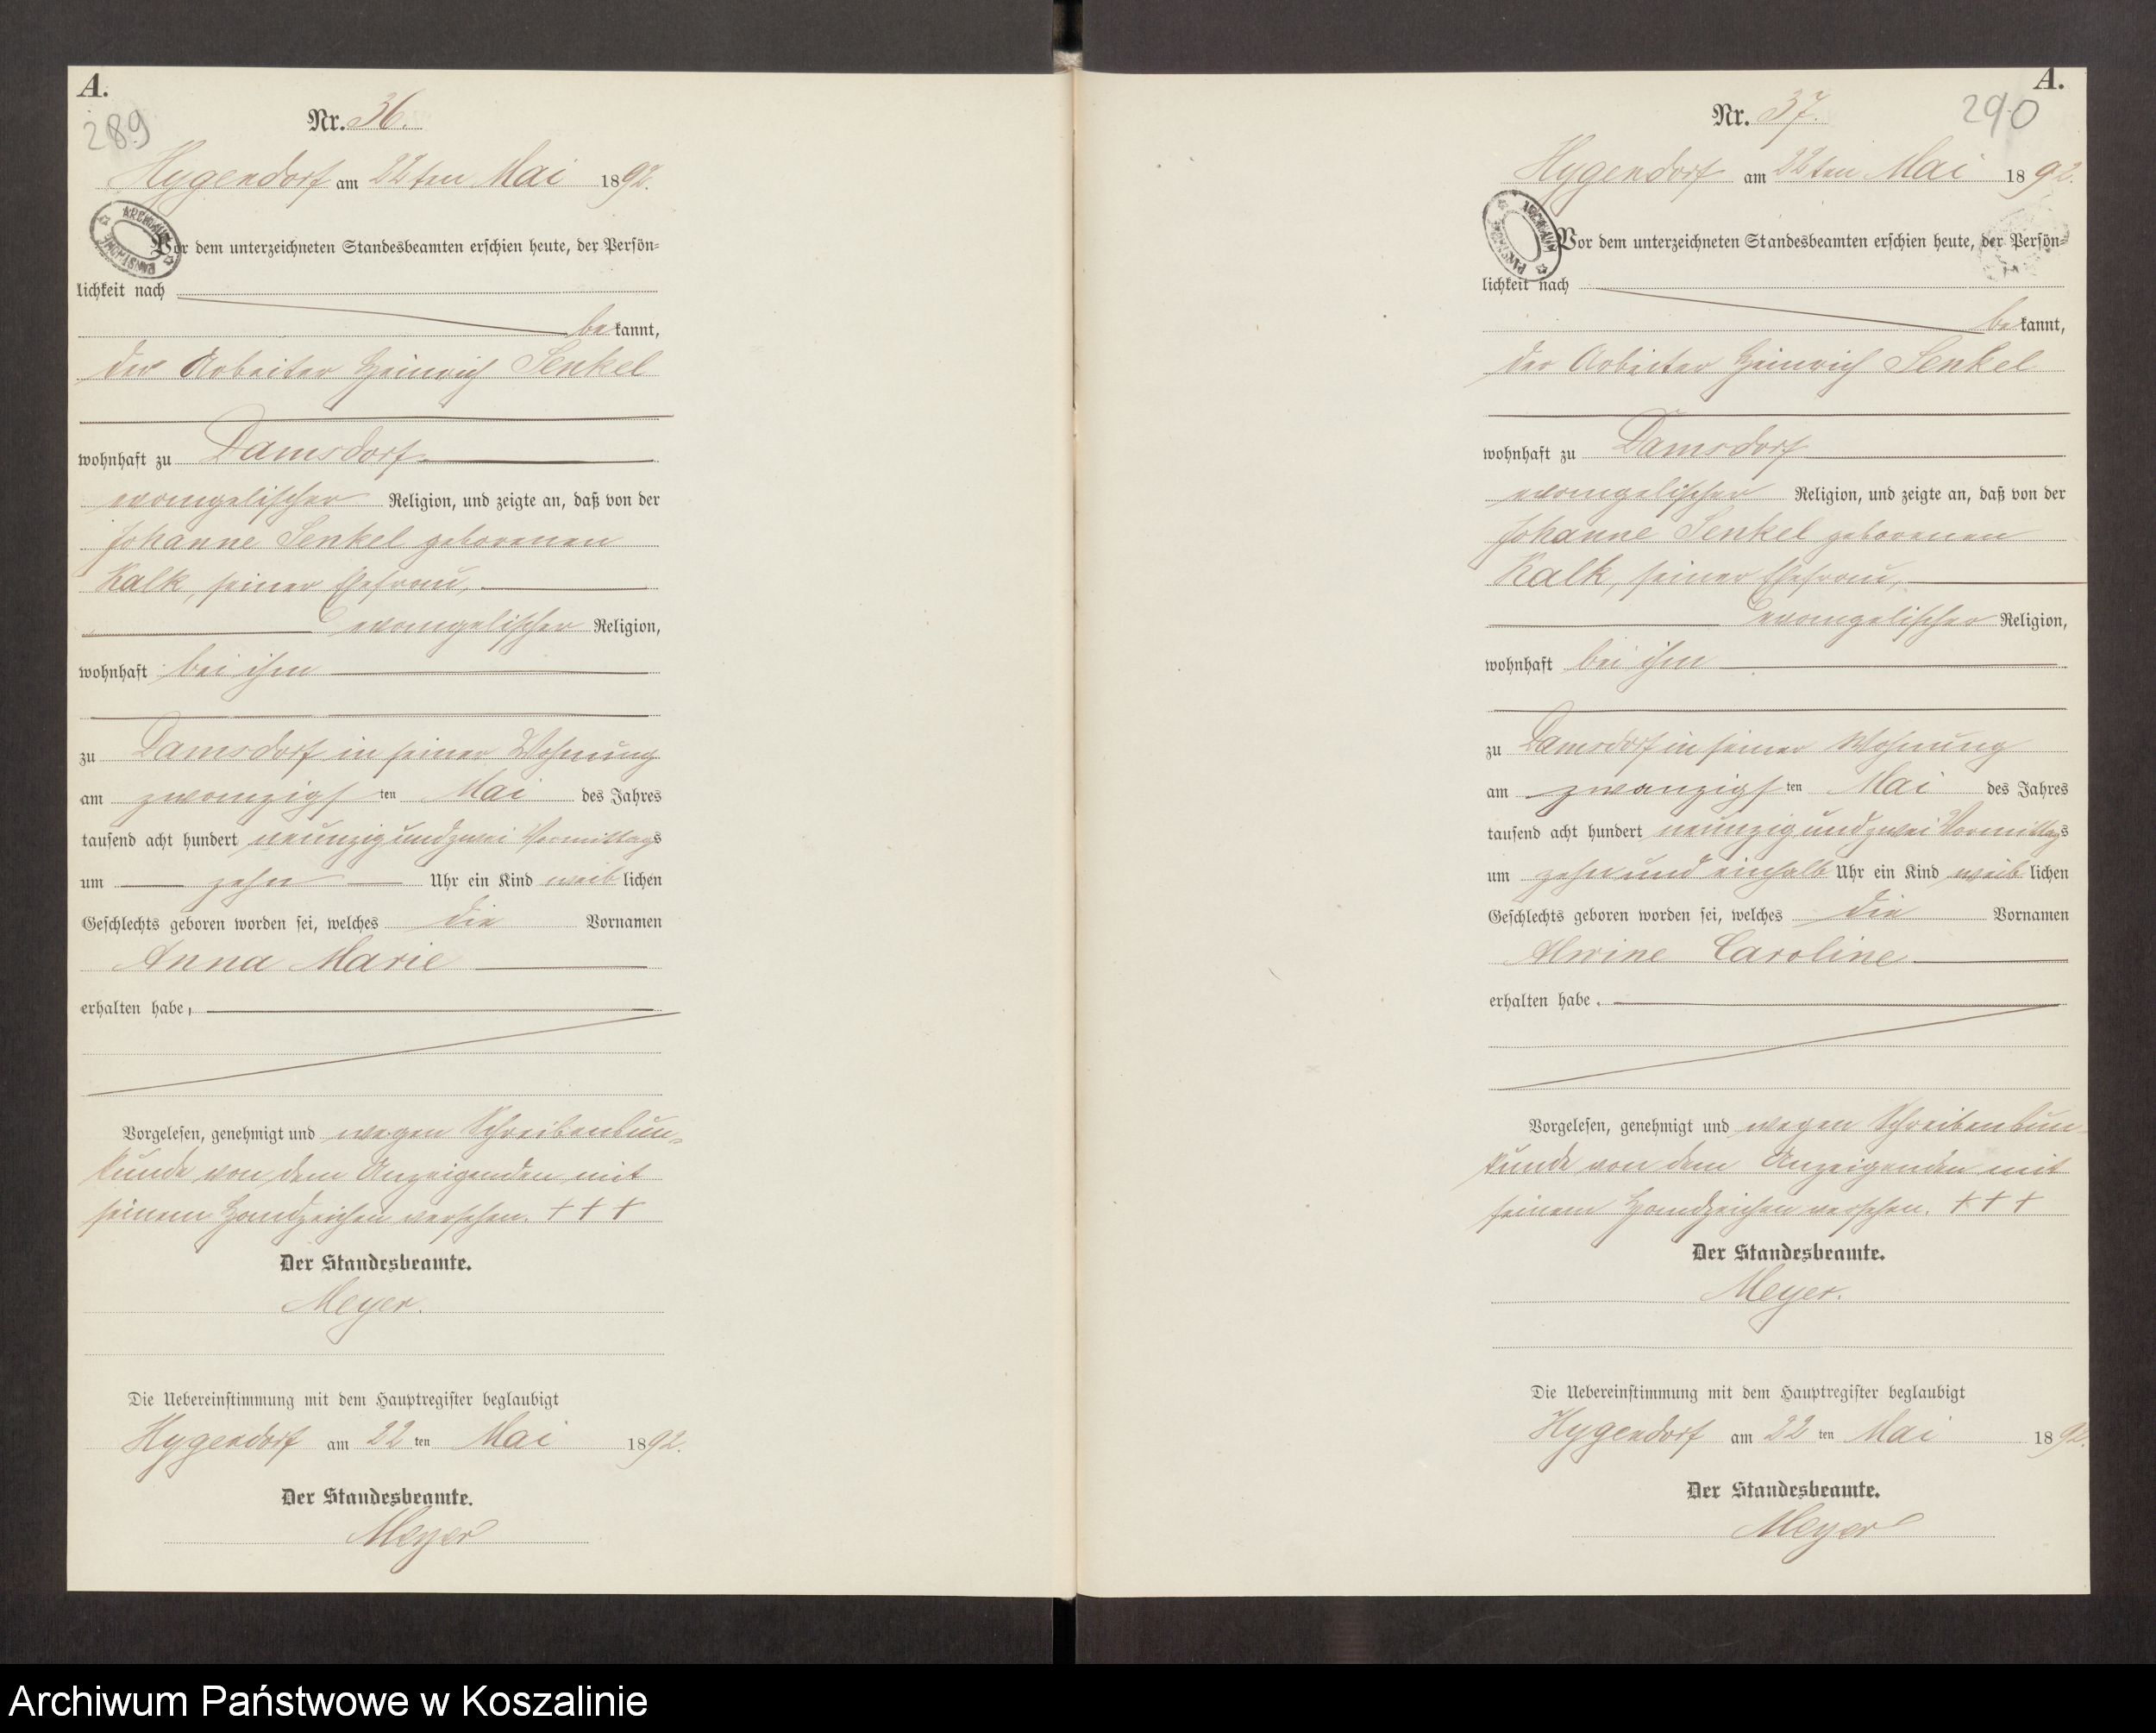 A.
289
Nr. 36.
Hygendorf am 22ten Mai 1892.
ARCHIWUM PAŃSTWOWE
Vor dem unterzeichneten Standesbeamten erschien heute, der Persön-
lichkeit nach
bekannt,
der Arbeiter Heinrich Senkel
wohnhaft zu Damsdorf
evangelischer Religion, und zeigte an, daß von der
Johanne Senkel geborenen
Kalk, seiner Ehefrau,
evangelischer Religion,
wohnhaft bei ihm
zu Damsdorf in seiner Wohnung
am zwanzigsten Mai des Jahres
tausend acht hundert neunzig und zwei Vormittags
um zehn Uhr ein Kind weiblichen
Geschlechts geboren worden sei, welches die Vornamen
Anna Marie
erhalten habe,
Vorgelesen, genehmigt und wegen Schreibenbun-
kunde von dem Anzeigenden mit
seinem Handzeichen versehen. + + +
Der Standesbeamte.
Meyer.
Die Uebereinstimmung mit dem Hauptregister beglaubigt
Hygendorf am 22ten Mai 1892.
Der Standesbeamte.
Meyer
A.
290
Nr. 37.
Hygendorf am 22ten Mai 1892.
ARCHIWUM PAŃSTWOWE
Vor dem unterzeichneten Standesbeamten erschien heute, der Persön-
lichkeit nach
bekannt,
der Arbeiter Heinrich Senkel
wohnhaft zu Damsdorf
evangelischer Religion, und zeigte an, daß von der
Johanne Senkel geborenen
Kalk, seiner Ehefrau,
evangelischer Religion,
wohnhaft bei ihm
zu Damsdorf in seiner Wohnung
am zwanzigsten Mai des Jahres
tausend acht hundert neunzig und zwei Vormittags
um zehn und einhalb Uhr ein Kind weiblichen
Geschlechts geboren worden sei, welches die Vornamen
Alwine Caroline
erhalten habe.
Vorgelesen, genehmigt und wegen Schreibenbun-
kunde von dem Anzeigenden mit
seinem Handzeichen versehen. + + +
Der Standesbeamte.
Meyer.
Die Uebereinstimmung mit dem Hauptregister beglaubigt
Hygendorf am 22ten Mai 1892.
Der Standesbeamte.
Meyer
Archiwum Państwowe w Koszalinie